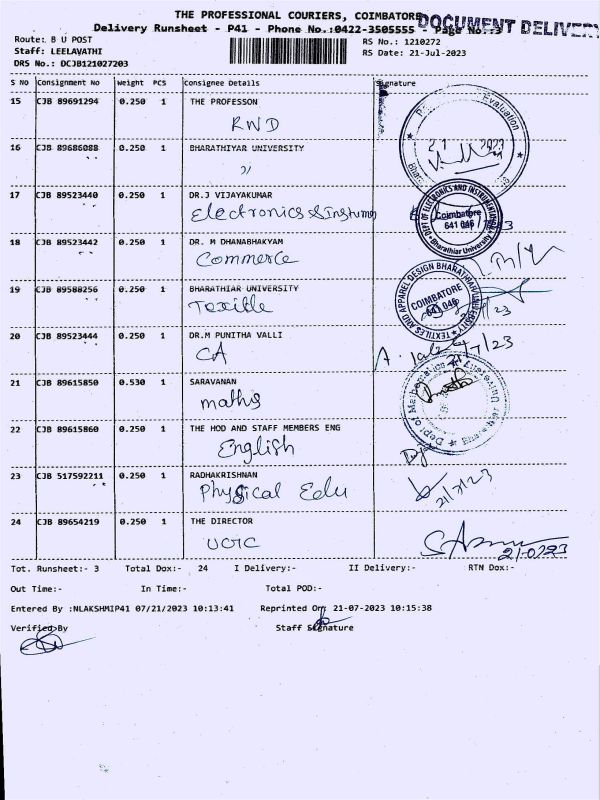 THE PROFESSIONAL COURIERS, COIMBATORE
DOCUMENT DELIVERY
Delivery Runsheet - P41 - Phone No.:0422-3505555 - Page No.:3
Route: B U POST
RS No.: 1210272
Staff: LEELAVATHI
RS Date: 21-Jul-2023
DRS No.: DCJB121027203
S NO Consignment No Weight PCS Consignee Details Signature
15 CJB 89691294 0.250 1 THE PROFESSON
RWD
Evaluation
21 2023
16 CJB 89686088 0.250 1 BHARATHIYAR UNIVERSITY
〃
17 CJB 89523440 0.250 1 DR.J VIJAYAKUMAR
Electronics & Instrum
DEPT OF ELECRONICS AND INSTRUMENTATION
Coimbatore
641 046
Bharathiar University
18 CJB 89523442 0.250 1 DR. M DHANABHAKYAM
Commerce
19 CJB 89588256 0.250 1 BHARATHIAR UNIVERSITY
Textile
TEXTILES AND APPAREL DESIGN BHARATHIAR UNIVERSITY
COIMBATORE
641 046
20 CJB 89523444 0.250 1 DR.M PUNITHA VALLI
CA
21/7/23
21 CJB 89615850 0.530 1 SARAVANAN
maths
Dept of Mathematics
Bharathiar University
22 CJB 89615860 0.250 1 THE HOD AND STAFF MEMBERS ENG
English
23 CJB 517592211 0.250 1 RADHAKRISHNAN
Physical Edu
21/7/23
24 CJB 89654219 0.250 1 THE DIRECTOR
UCIC
21/07/23
Tot. Runsheet:- 3 Total Dox:- 24 I Delivery:- II Delivery:- RTN Dox:-
Out Time:- In Time:- Total POD:-
Entered By :NLAKSHMIP41 07/21/2023 10:13:41 Reprinted On: 21-07-2023 10:15:38
Verified By Staff Signature